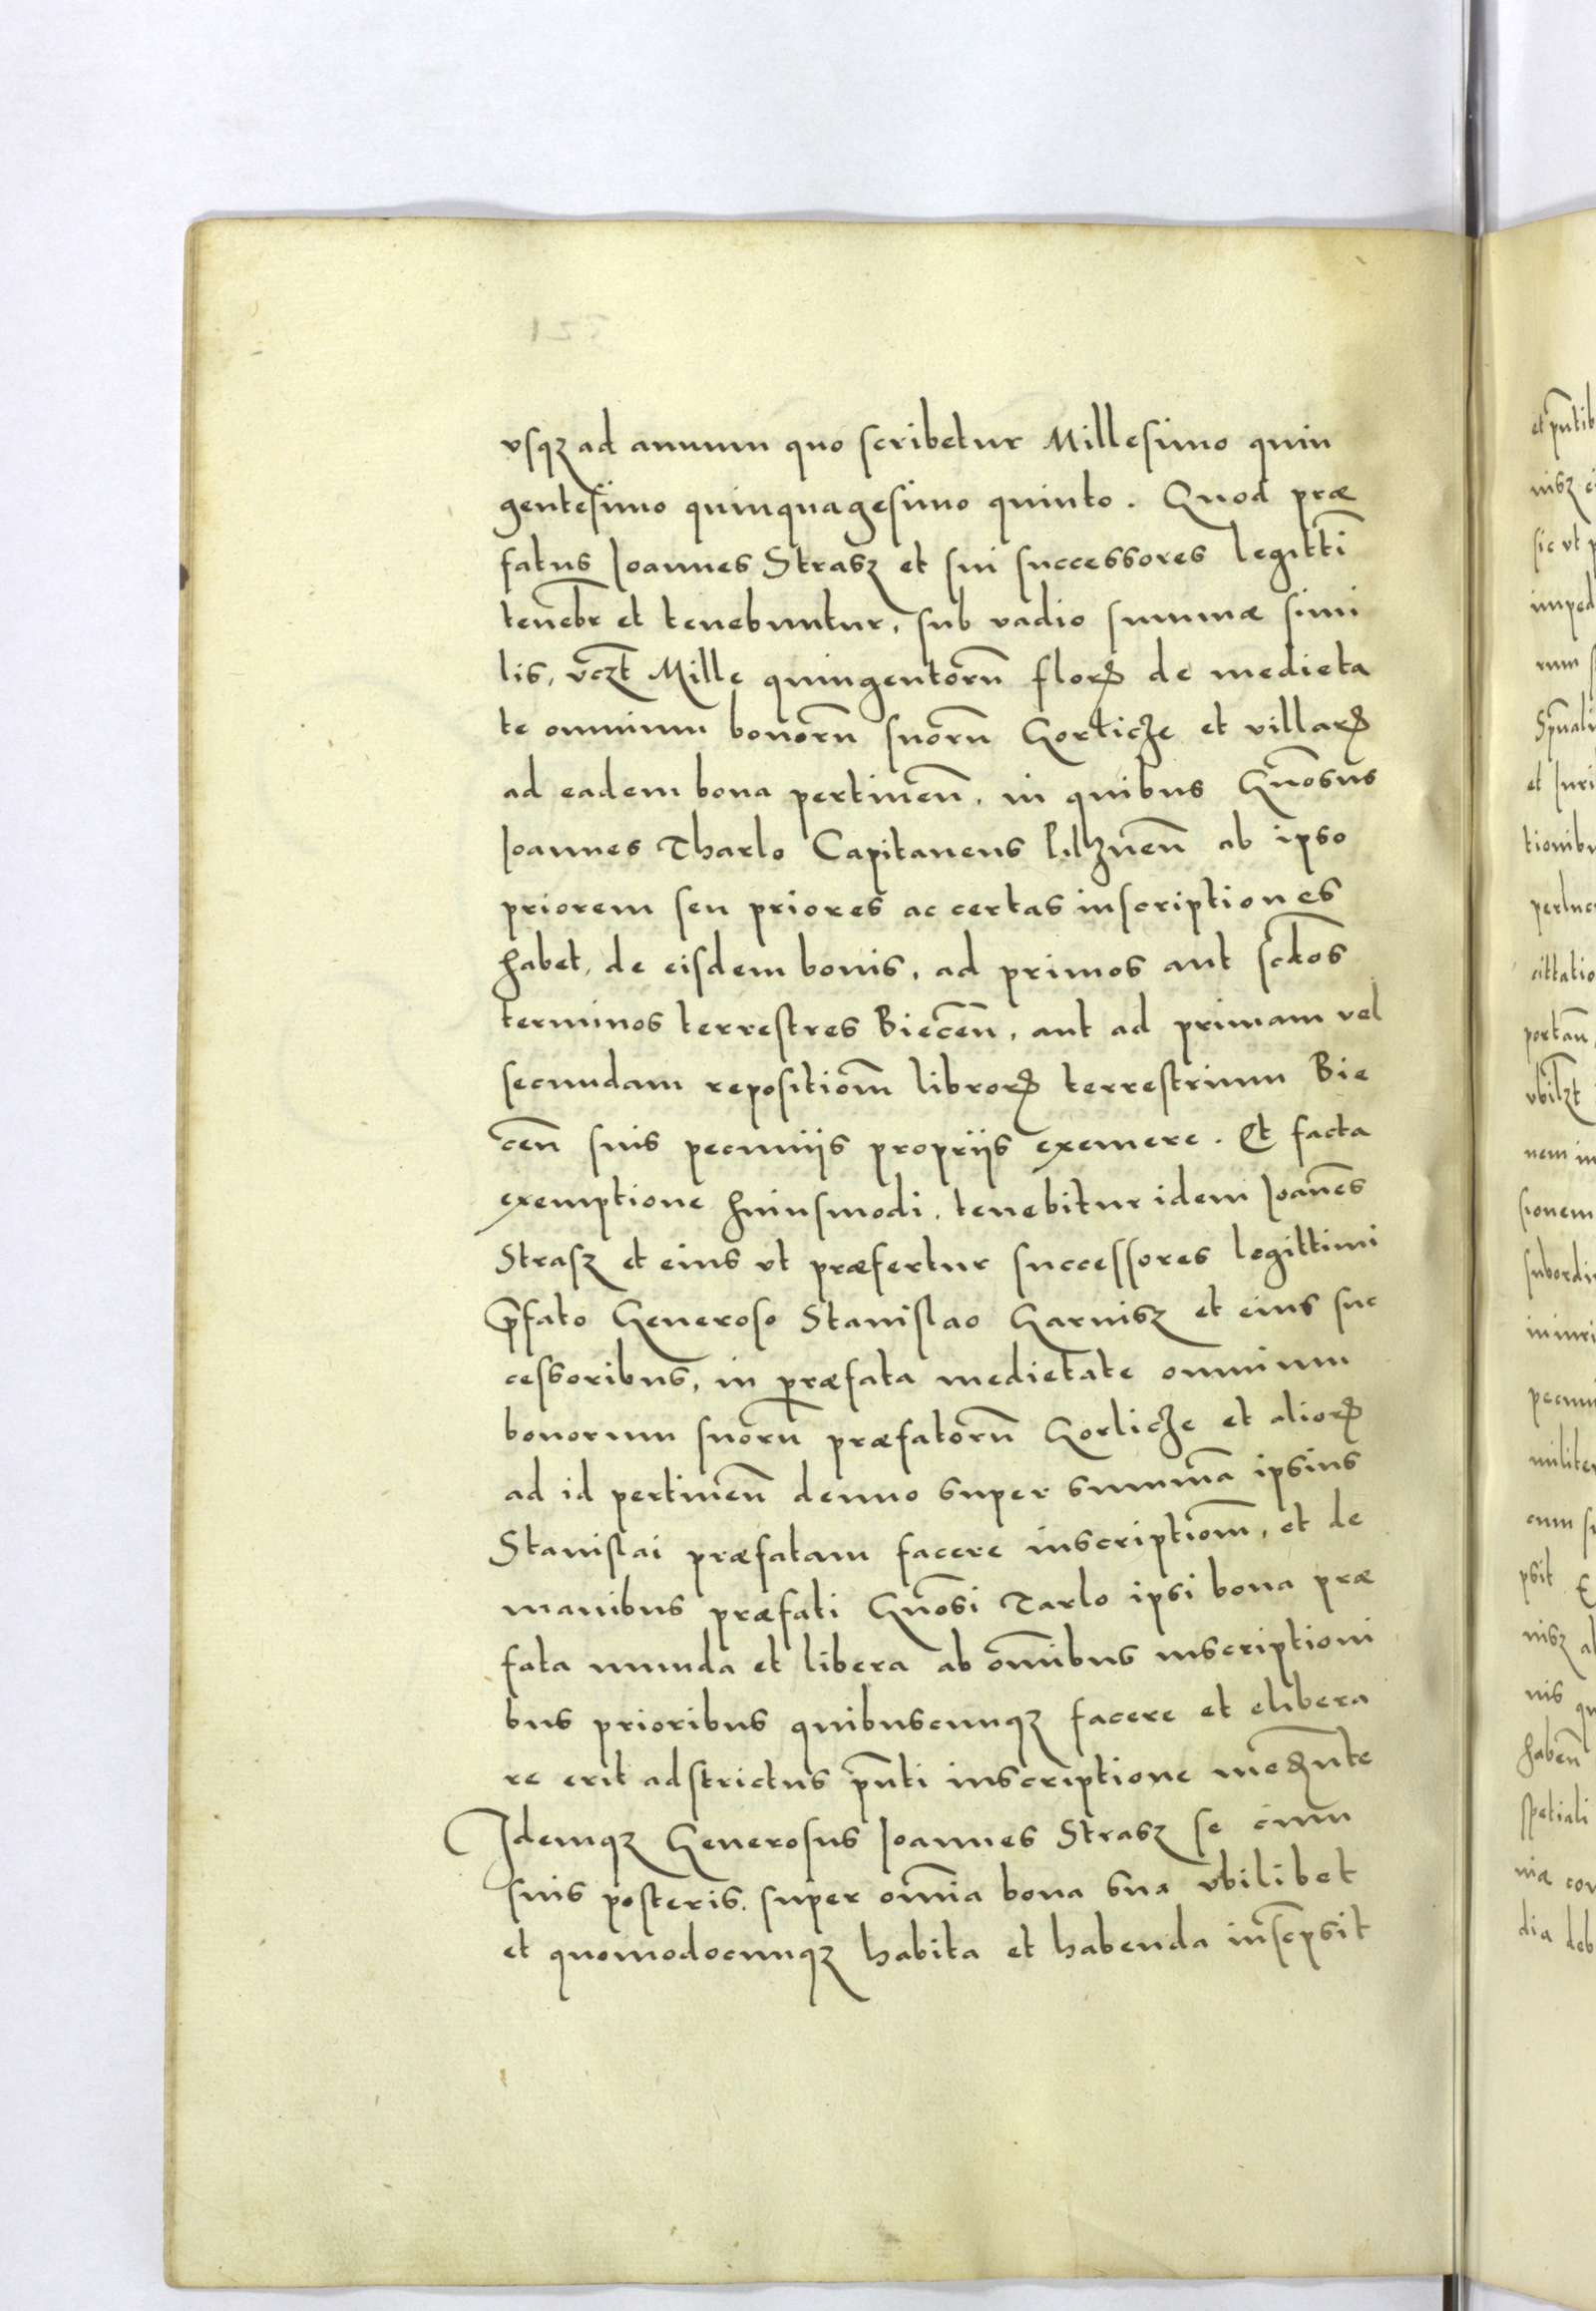 vsqȝ ad annum quo scribetur Millesimo quin
gentesimo quinquagesimo quinto. Quod præ
fatus Joannes Strasz et sui successores legitti̅
tenebr̅ et tenebuntur, sub vadio summæ simi
lis, vczt̅ Mille quingentoru̅ florꝝ de medieta
te omnium bonoru̅ suoru̅ Gorlicze et villarꝝ
ad eadem bona pertinen̅, in quibus Gn̅osus
Joannes Tharlo Capitaneus Pilznen̅ ab ipso
priorem seu priores ac certas inscriptiones
habet, de eisdem bonis, ad primos aut scd̅os
terminos terrestres Biecen̅, aut ad primam vel
secundam repositiom̅ librorꝝ terrestrium Bie
cen̅ suis pecuniis propriis exemere. Et facta
exemptione huiusmodi, tenebitur idem Joan̅es
Strasz et eius vt præfertur successores legittimi
p̅fato Generoso Stanislao Garnisz et eius suc
cessoribus, in præfata medietate omnium
bonorum suoru̅ præfatoru̅ Gorlicze et aliorꝝ
ad id pertinen̅ denuo super summa̅ ipsius
Stanislai præfatam facere inscriptiom̅, et de
manibus præfati Gn̅osi Tarlo ipsi bona præ
fata munda et libera ab om̅ibus inscriptioni
bus prioribus quibuscunqȝ facere et elibera
re erit adstrictus pn̅ti inscriptione med̅nte
Idemqȝ Generosus Joannes Strasz se cum
suis posteris, super om̅ia bona sua vbilibet
et quomodocunqȝ habita et habenda insc̅psit